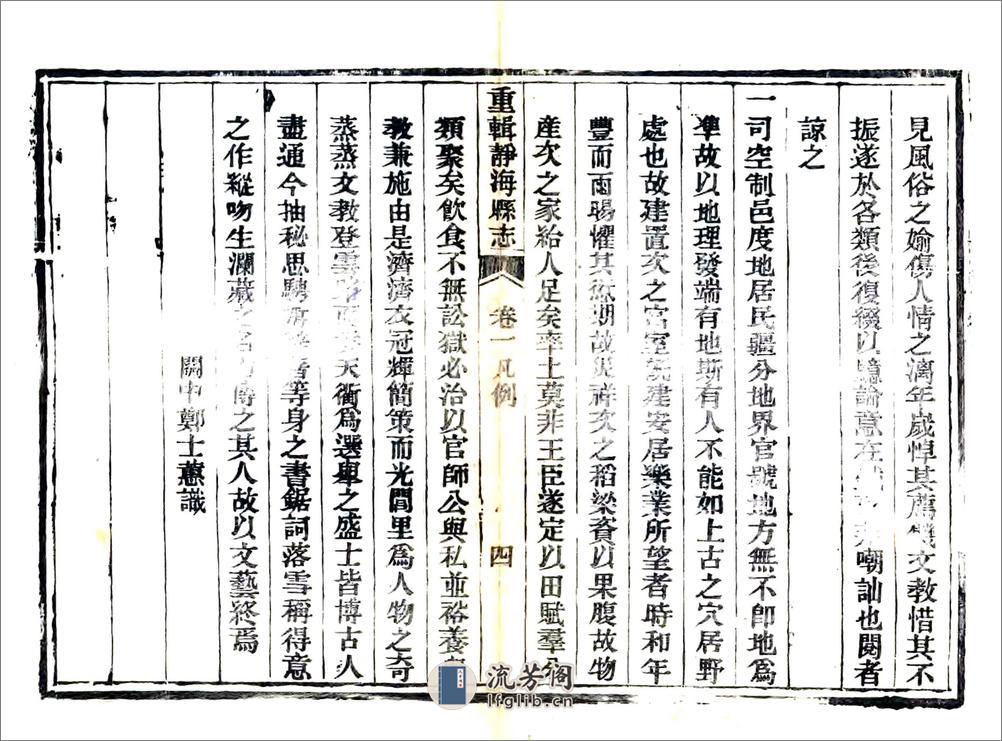 見風俗之媮傷人情之漓年歲悼其薦饑文教惜其不
振遂於各類後復綴以臆論意在嘲訕也閱者
諒之
一司空制邑度地居民疆分地界官號地方無不卽地為
準故以地理發端有地斯有人不能如上古之穴居野
處也故建置次之宮室旣建安居樂業所望者時和年
豐而雨暘懼其故災祥次之稻粱資以果腹故物
產次之家給人足矣率土莫非王臣遂定以田賦羣
重輯靜海縣志
卷一凡例
四
類聚矣飲食不無訟獄必治以官師公與私並裕養
教兼施由是濟濟衣冠輝簡策而光閭里為人物之奇
蒸蒸文教登雲天衢為選舉之盛士皆博古人
盡通今抽秘思騁等身之書鋸詞落雪稱得意
之作縱吻生瀾藏之名傳之其人故以文藝終焉
關中鄭士蕙識
流芳阁
lfglib.cn